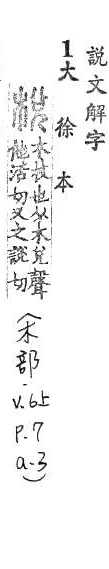 說文解字
1大徐本
梲 木杖也从木兌聲
他活切又之說切
(木部·
v.6上
p.7
a-3)